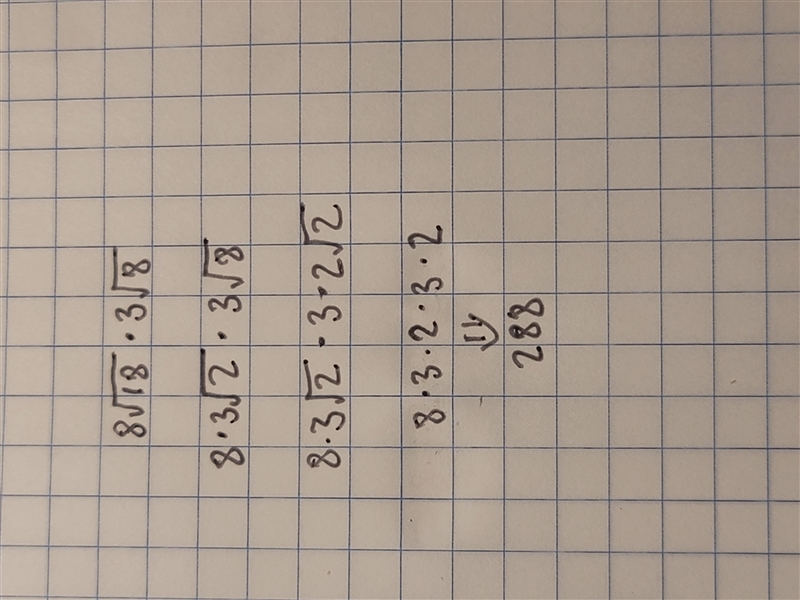 8√18 · 3√8
8·3√2 · 3√8
8·3√2 · 3·2√2
8·3·2·3·2
⇓
288